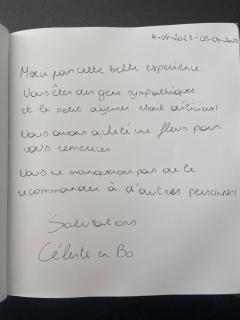 4-04-2023 - 05-04-2023
Merci pour cette belle experience.
Vous êtes des gens sympathiques
et le petit dejeuner etait délicieux!
Vous avons acheté une fleur pour
vous remercier.
Vous ne manquerons pas de le
recommander à d'autres personnes!
Salutations
Céleste en Bo